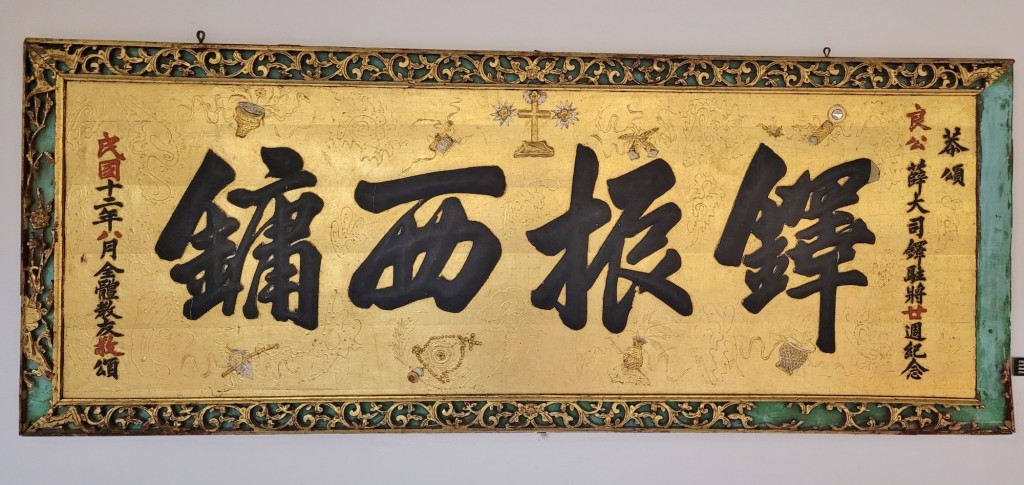 恭頌
良公薛大司鐸駐將廿週紀念
鐸振西鏞
民國十二年八月全體教友敬頌